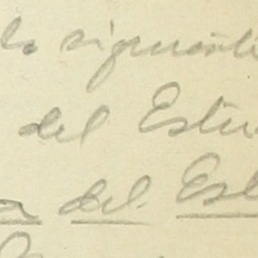 lo siguiente
del Estu
a del. Est